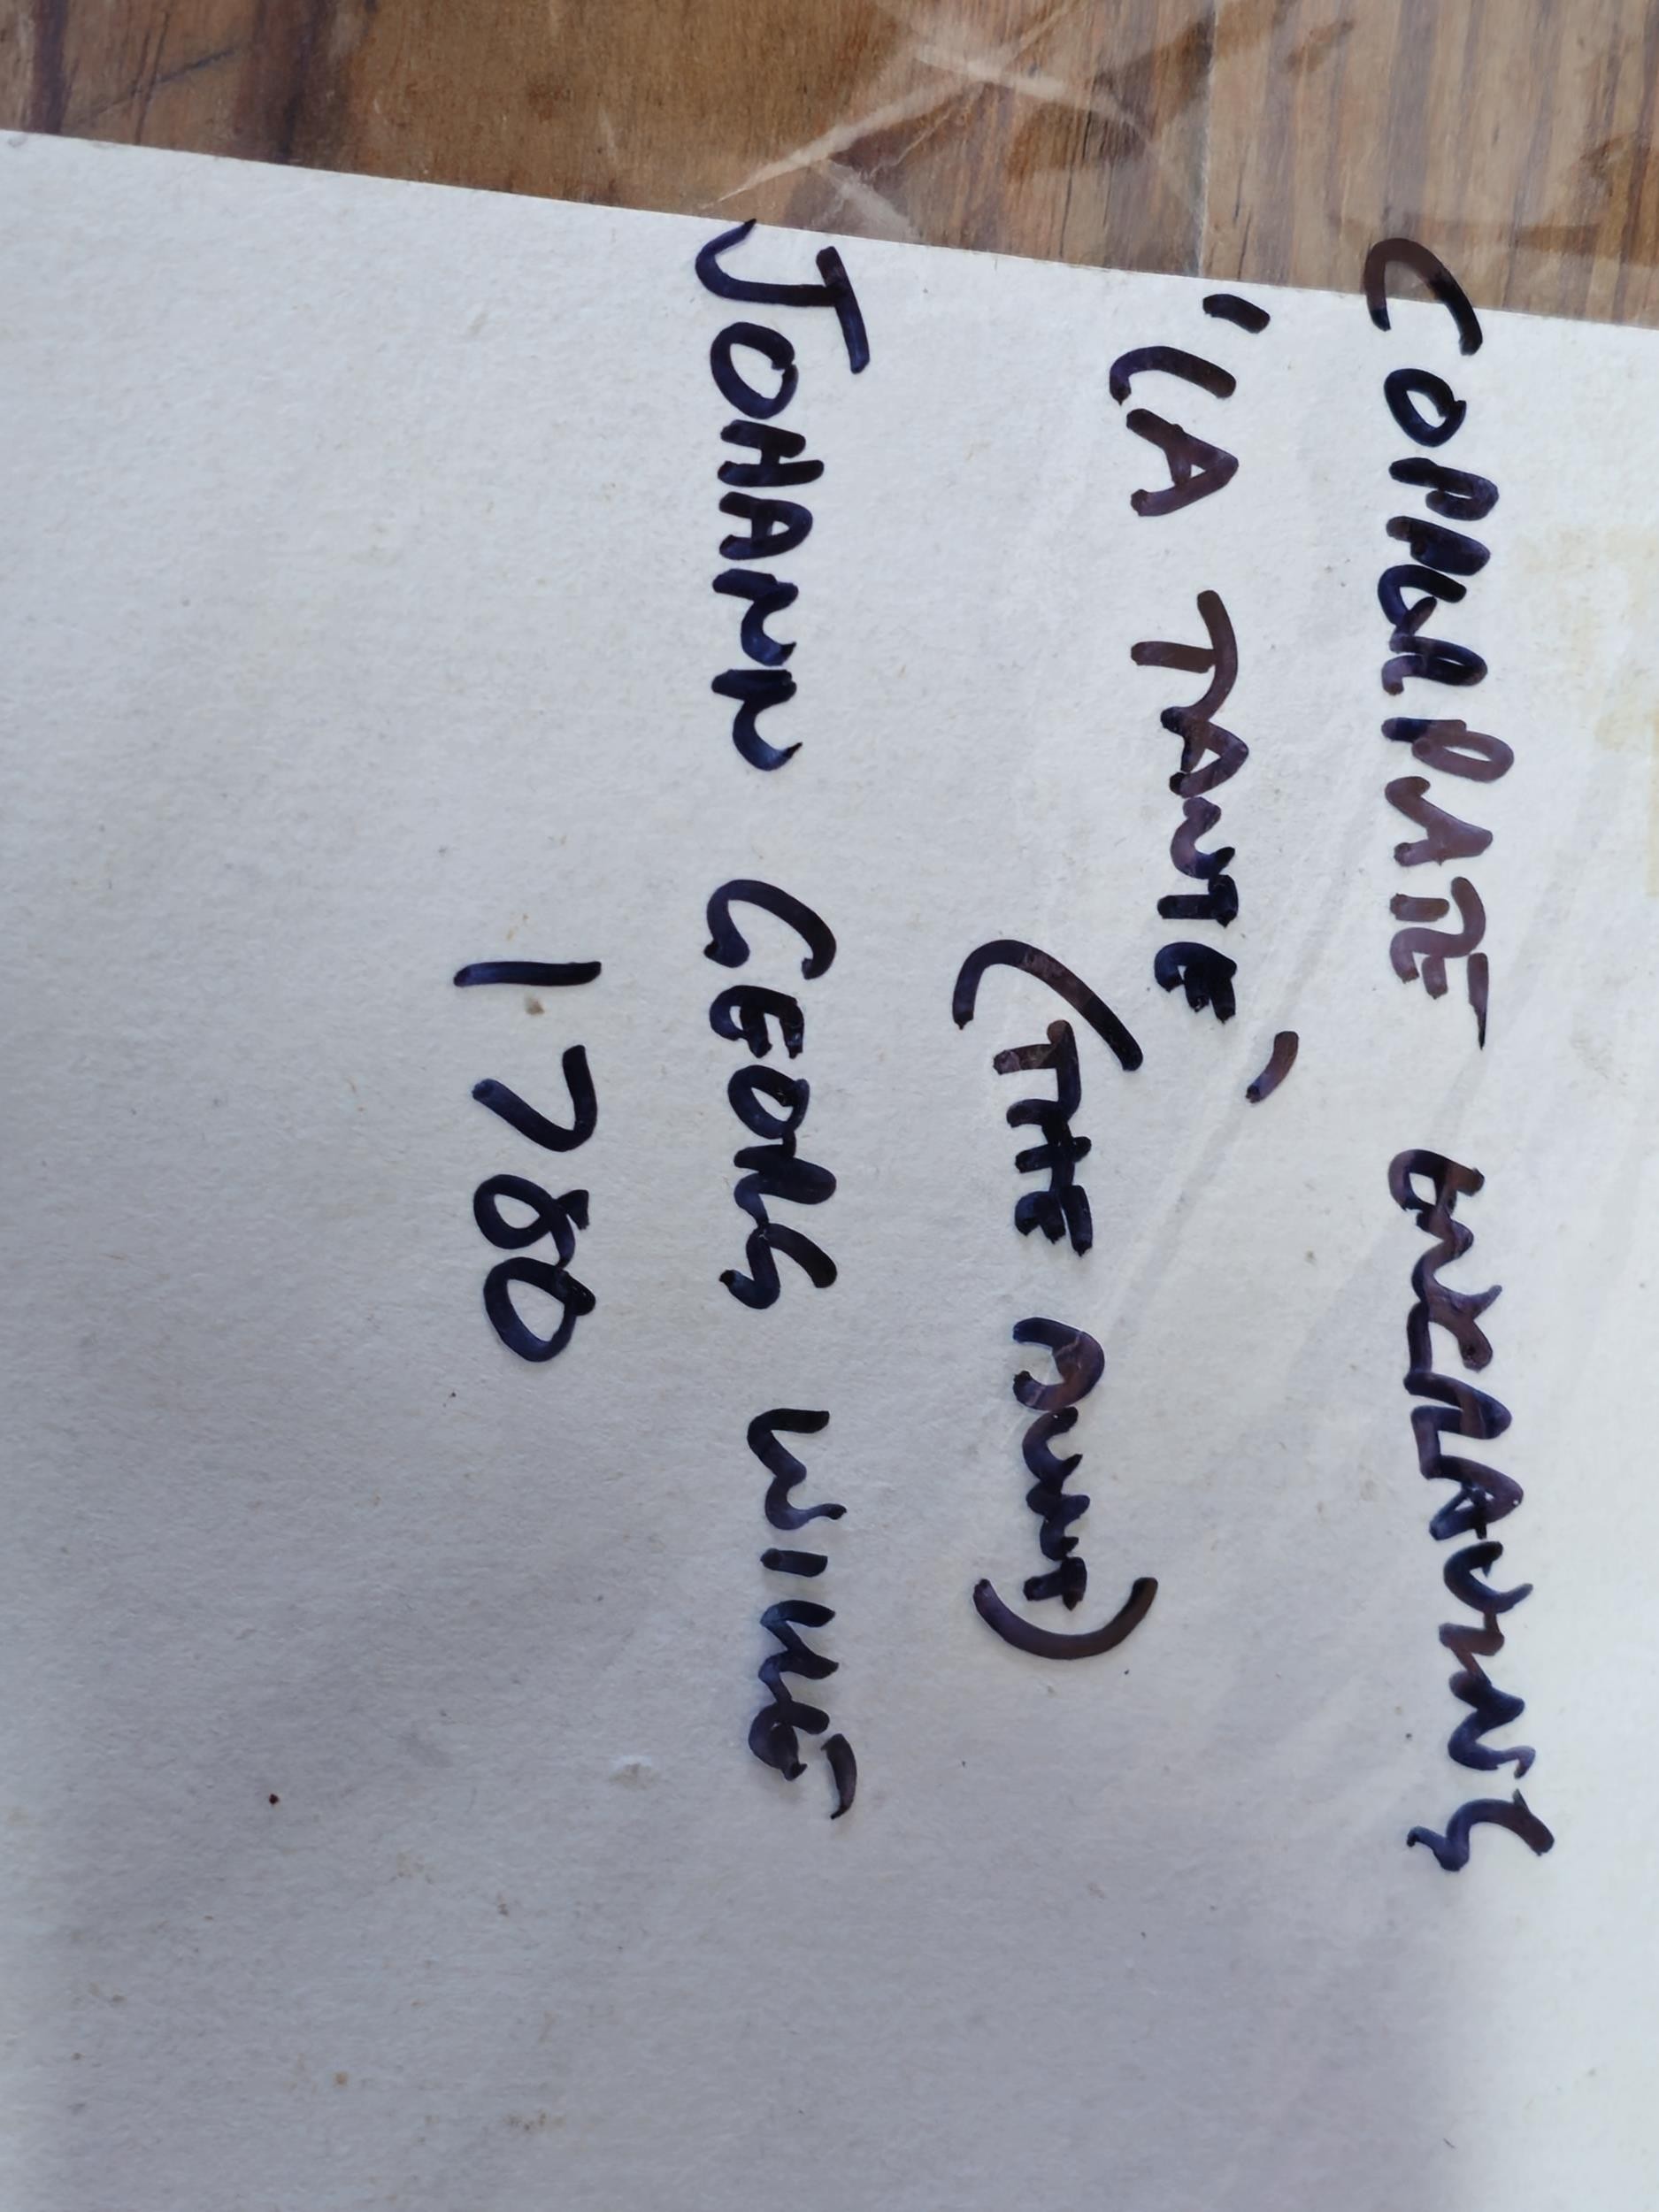 COPPERPLATE ENGRAVING
'LA TANTE'
(THE AUNT)
JOHANN GEORG WILLE
1780